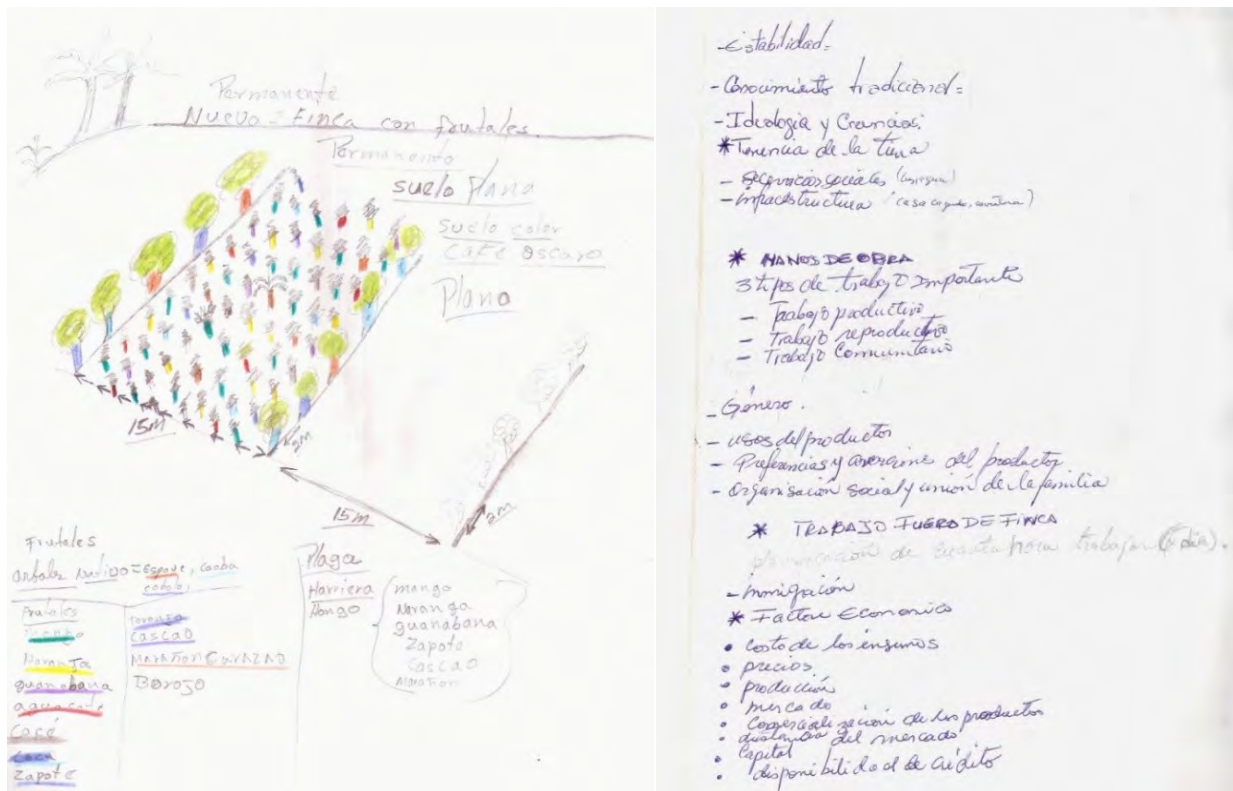 Permanente
Nuevo = Finca con frutales.
Permanente
suelo plano
Suelo color
Café Oscuro
Plano
15M
15M
2M
Frutales
arboles nativo = Espave, caoba
Frutales
Naranja
guanabana
aguacate
Café
Zapote
CASCAO
MARAÑON CURAZAO
BOROJO
Plaga
Harriera
Hongo
mango
Naranja
guanabana
Zapote
Cascao
Marañon
- Estabilidad =
- Conocimiento tradicional =
- Ideologia y Creencias:
* Tenencia de la tierra
- sociales
- infraestructura
* MANOS DE OBRA
3 tipos de trabajo importante
- Trabajo productivo
- Trabajo reproductivo
- Trabajo Comunitario
- Género.
- usos del producto
- Preferencias y aversiones del productor
- Organisación social y unión de la familia
* TRABAJO FUERA DE FINCA
planificación de cuanta hora trabajar
- inmigración
* Factor Economico
• costo de los insumos
• precios
• producción
• mercado
• comercialización de los productos
• distancia del mercado
• Capital
• disponibilidad de crédito